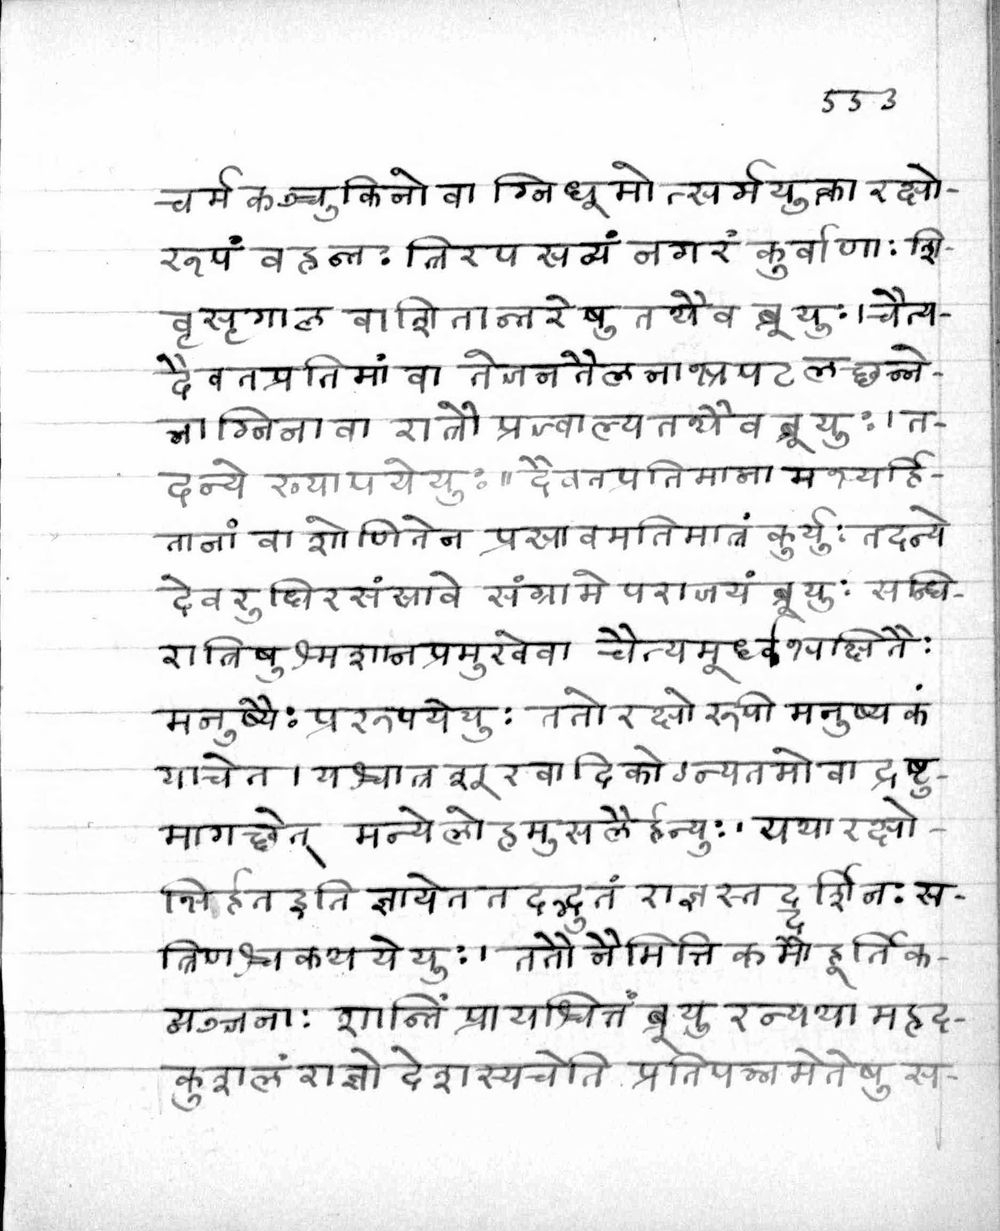 553
चर्म कञ्चुकिनो वा ग्निधूमोत्सर्गयुक्ता रक्षो-
रूपं वहन्तः त्रिरपसव्यं नगरं कुर्वाणाः शि-
वृसृगाल वाशितान्तरेषु तथैव ब्रूयुः। चैत्य-
दैवतप्रतिमां वा तेजनतैलनाभ्रपटलच्छन्ने-
नाग्निना वा रात्रौ प्रज्वाल्य तथैव ब्रूयुः। त-
दन्ये ख्यापयेयुः॥ दैवतप्रतिमाना मभ्यर्हि-
तानां वा शोणितेन प्रस्रावमतिमात्रं कुर्युः तदन्ये
देवरुधिरसंस्रावे संग्रामे पराजयं ब्रूयुः सन्धि-
रात्रिषु श्मशानप्रमुखेवा चैत्यमूर्ध्वभक्षितैः
मनुष्यैः प्ररूपयेयुः ततो रक्षोरूपी मनुष्यकं
याचेत। यश्चात्र शूरवादिकोऽन्यतमो वा द्रष्टु-
मागच्छेत् मन्ये लोहमुसलैर्हन्युः। यथा रक्षो-
भिर्हत इति ज्ञायेत तदद्भुतं राज्ञस्तद्दर्शिनः स-
त्रिणश्च कथयेयुः। ततौ नैमित्तिकमौहूर्तिक-
व्यञ्जनाः शान्तिं प्रायश्चित्तं ब्रूयु रन्यथा महद-
कुशलं राज्ञो देशस्यचेति प्रतिपन्नमेतेषु स-